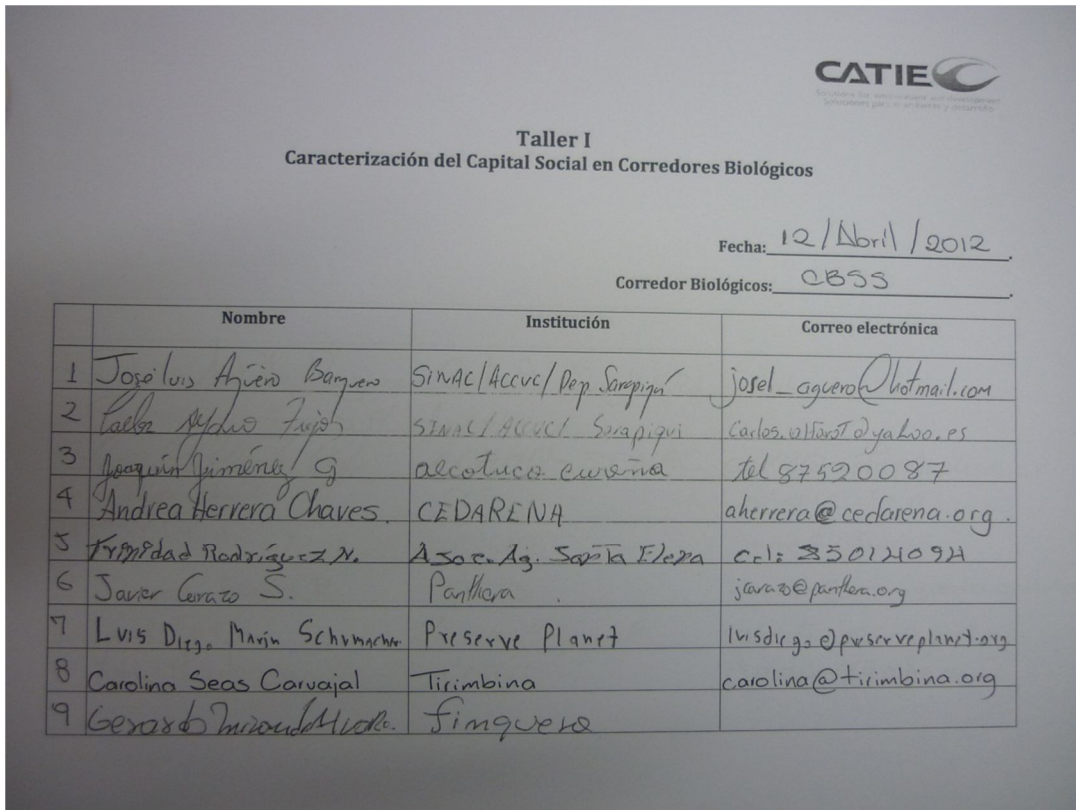 CATIE
Solutions for environment and development
Soluciones para el ambiente y desarrollo
Taller I
Caracterización del Capital Social en Corredores Biológicos
Fecha: 12/Abril/2012
Corredor Biológicos: CBSS
Nombre Institución Correo electrónica
1 José luis Agüero Barquero SINAC/ACCVC/Dep Sarapiquí josel_aguero@hotmail.com
2 SINAC/ACCVC/ Sarapiqui
3 Joaquín Jiménez G tel 87520087
4 Andrea Herrera Chaves. CEDARENA aherrera@cedarena.org.
5 Trinidad Rodríguez N. Asoc. Ag. Santa Elena
6 Javier Carazo S. Panthera jcarazo@panthera.org
7 Luis Diego Marín Schumacher Preserve Planet luisdiego@preserveplanet.org
8 Carolina Seas Carvajal Tirimbina carolina@tirimbina.org
9 Gerardo finquero